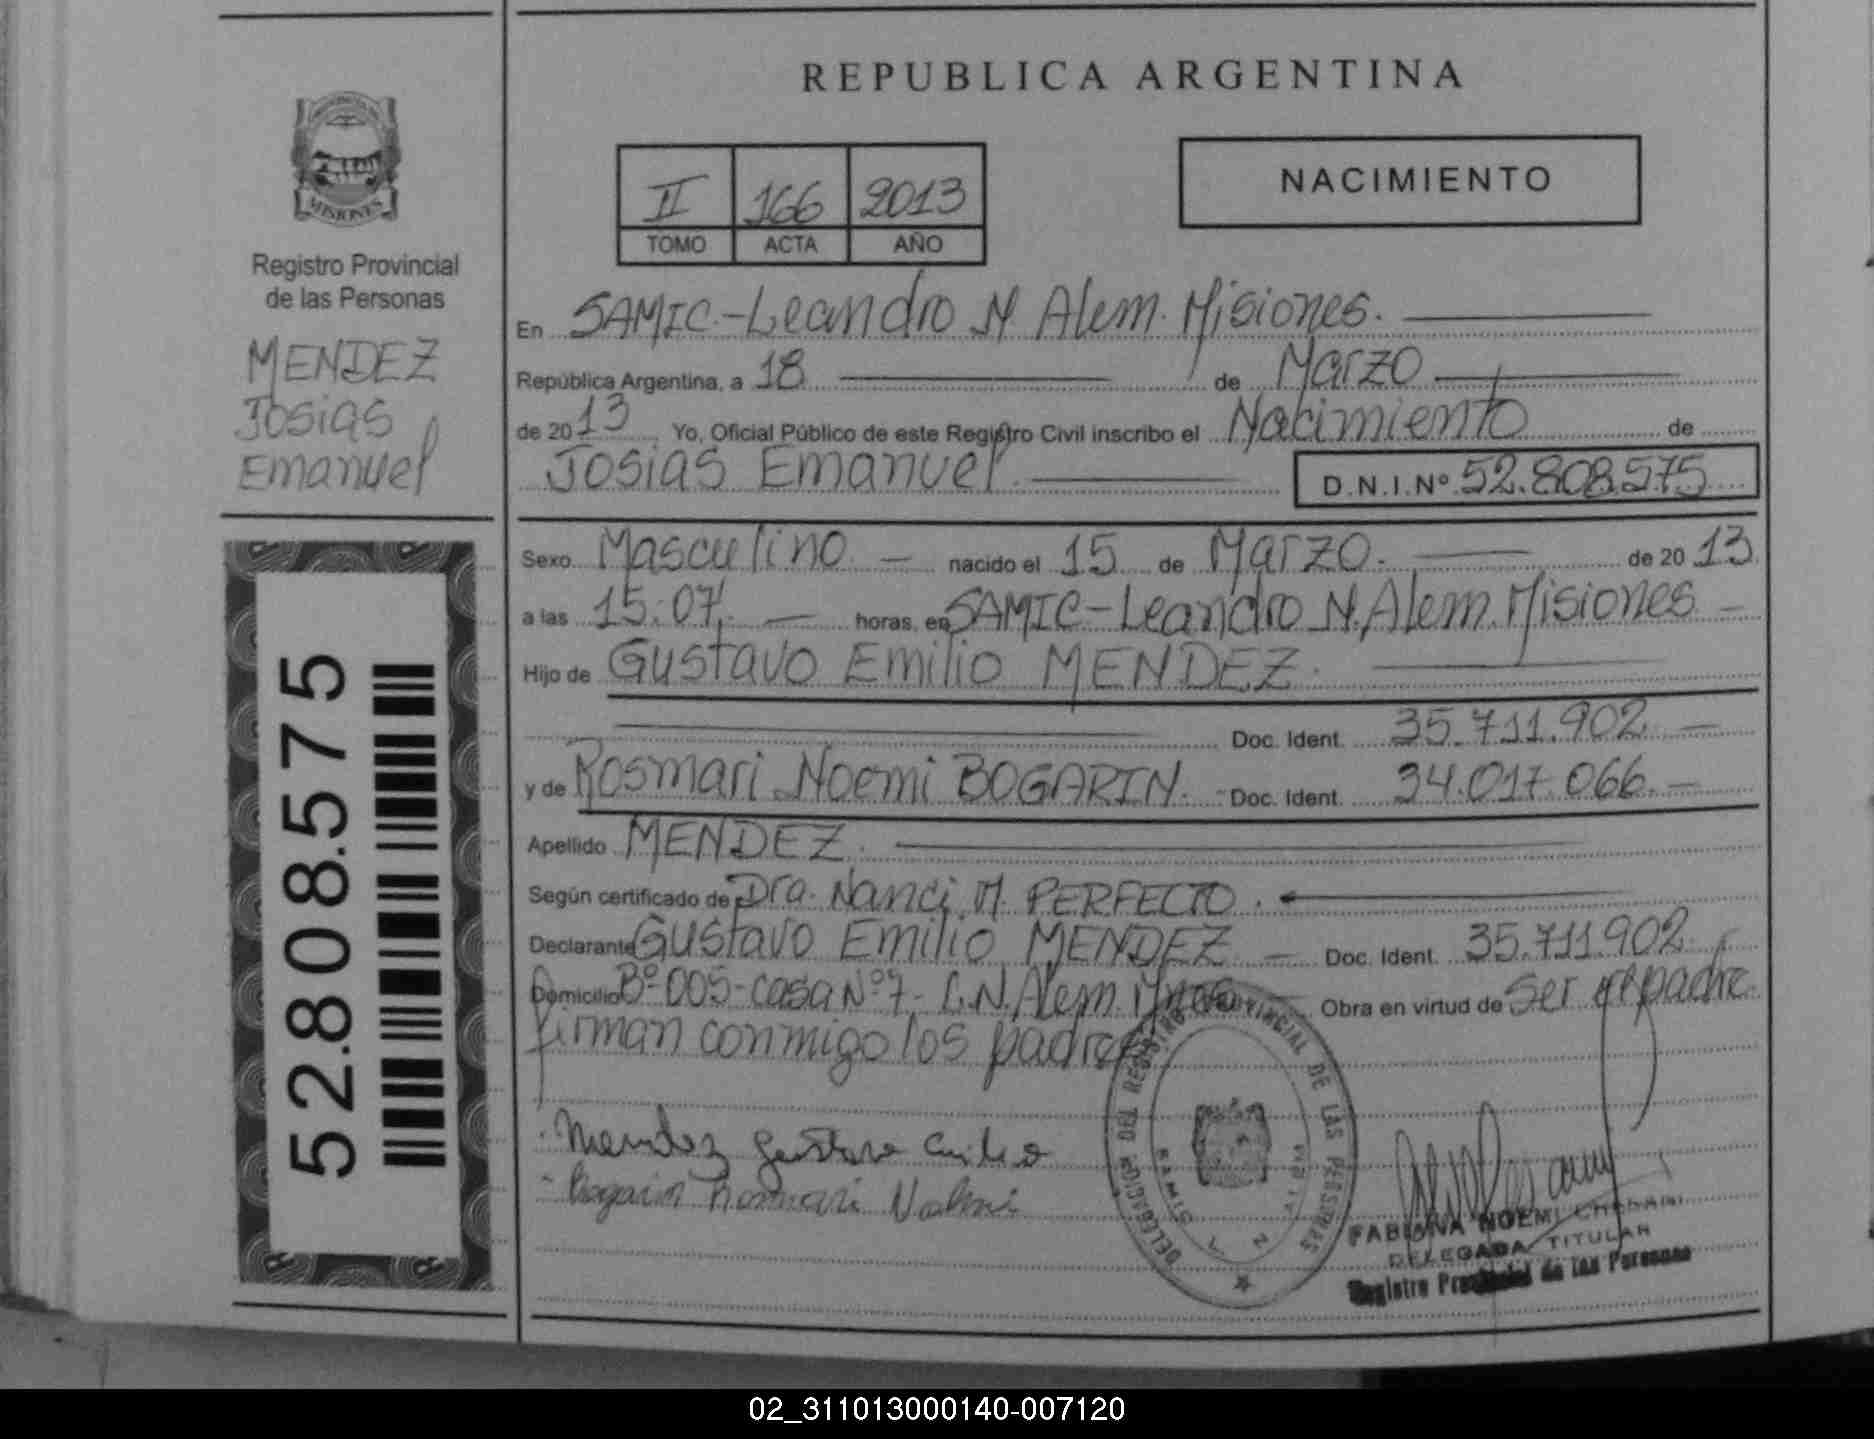 REPUBLICA ARGENTINA
PROVINCIA DE
MISIONES
Registro Provincial
de las Personas
MENDEZ
Josias
Emanuel
52.808.575
II 166 2013
TOMO ACTA AÑO
NACIMIENTO
En SAMIC.-Leandro N Alem. Misiones.
República Argentina, a 18 de Marzo
de 2013 Yo, Oficial Público de este Registro Civil inscribo el Nacimiento de
Josias Emanuel. D.N.I.Nº 52.808.575
Sexo Masculino. nacido el 15 de Marzo. de 2013
a las 15:07. horas, en SAMIC-Leandro N. Alem. Misiones
Hijo de Gustavo Emilio MENDEZ.
Doc. Ident. 35.711.902
y de Rosmari Noemi BOGARIN. Doc. Ident. 34.017.066.
Apellido MENDEZ.
Según certificado de Dra. Nanci. M. PERFECTO.
Declarante Gustavo Emilio MENDEZ Doc. Ident. 35.711.902
Domicilio Bº 005-casa Nº 7- L.N. Alem. Mnes Obra en virtud de ser el padre.
firman conmigo los padres
Mendez Gustavo Emilio
Bogarin Rosmari Nohmi
DELEGACION DEL REGISTRO PROVINCIAL DE LAS PERSONAS
SAMIC
FABIANA NOEMI
DELEGADA TITULAR
Registro Provincial de las Personas
02_311013000140-007120